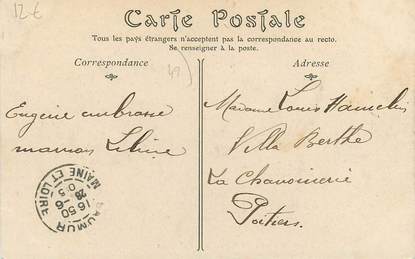 12 €
Carte Postale
Tous les pays étrangers n'acceptent pas la correspondance au recto.
Se renseigner à la poste.
Correspondance
Adresse
49
Eugénie embrasse
maman
Madame Louis
Villa Berthe
La Chanoinerie
Poitiers
SAUMUR
16 50
28-6
05
MAINE ET LOIRE